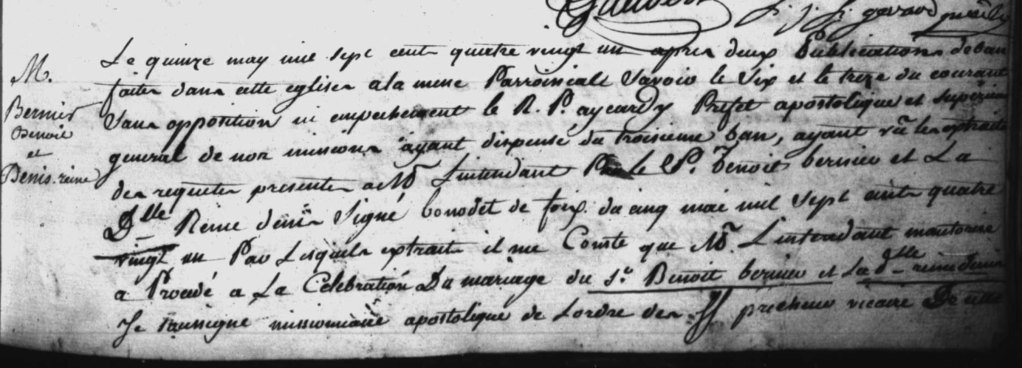 Le quinze may mil sept cent quatre vingt un apres deux Publications de ban
M.
faites dans cette eglise a la messe Parroissiale Savoir le Six et le treize du courant
Bernier
Sans opposition ni empechement le R. P. aycardy Prefet apostolique et superieur
Benoit
et
general de nos missions ayant dispensé du troisieme ban, ayant vû les extraits
Denis reine
des requetes presentes a Mr. L'intendant Par le Sr. Benoit bernier et La
Dlle Reine denis Signé bonodet de foix du cinq mai mil sept cent quatre
vingt un Par Lesquels extrait il me Conste que Mr. L'intendant mautorise
a Procedé a La Celebration Du mariage du Sr. Benoit bernier et La dlle reine denis
Je Soussigne missionnaire apostolique de Lordre des ff precheur vicaire De